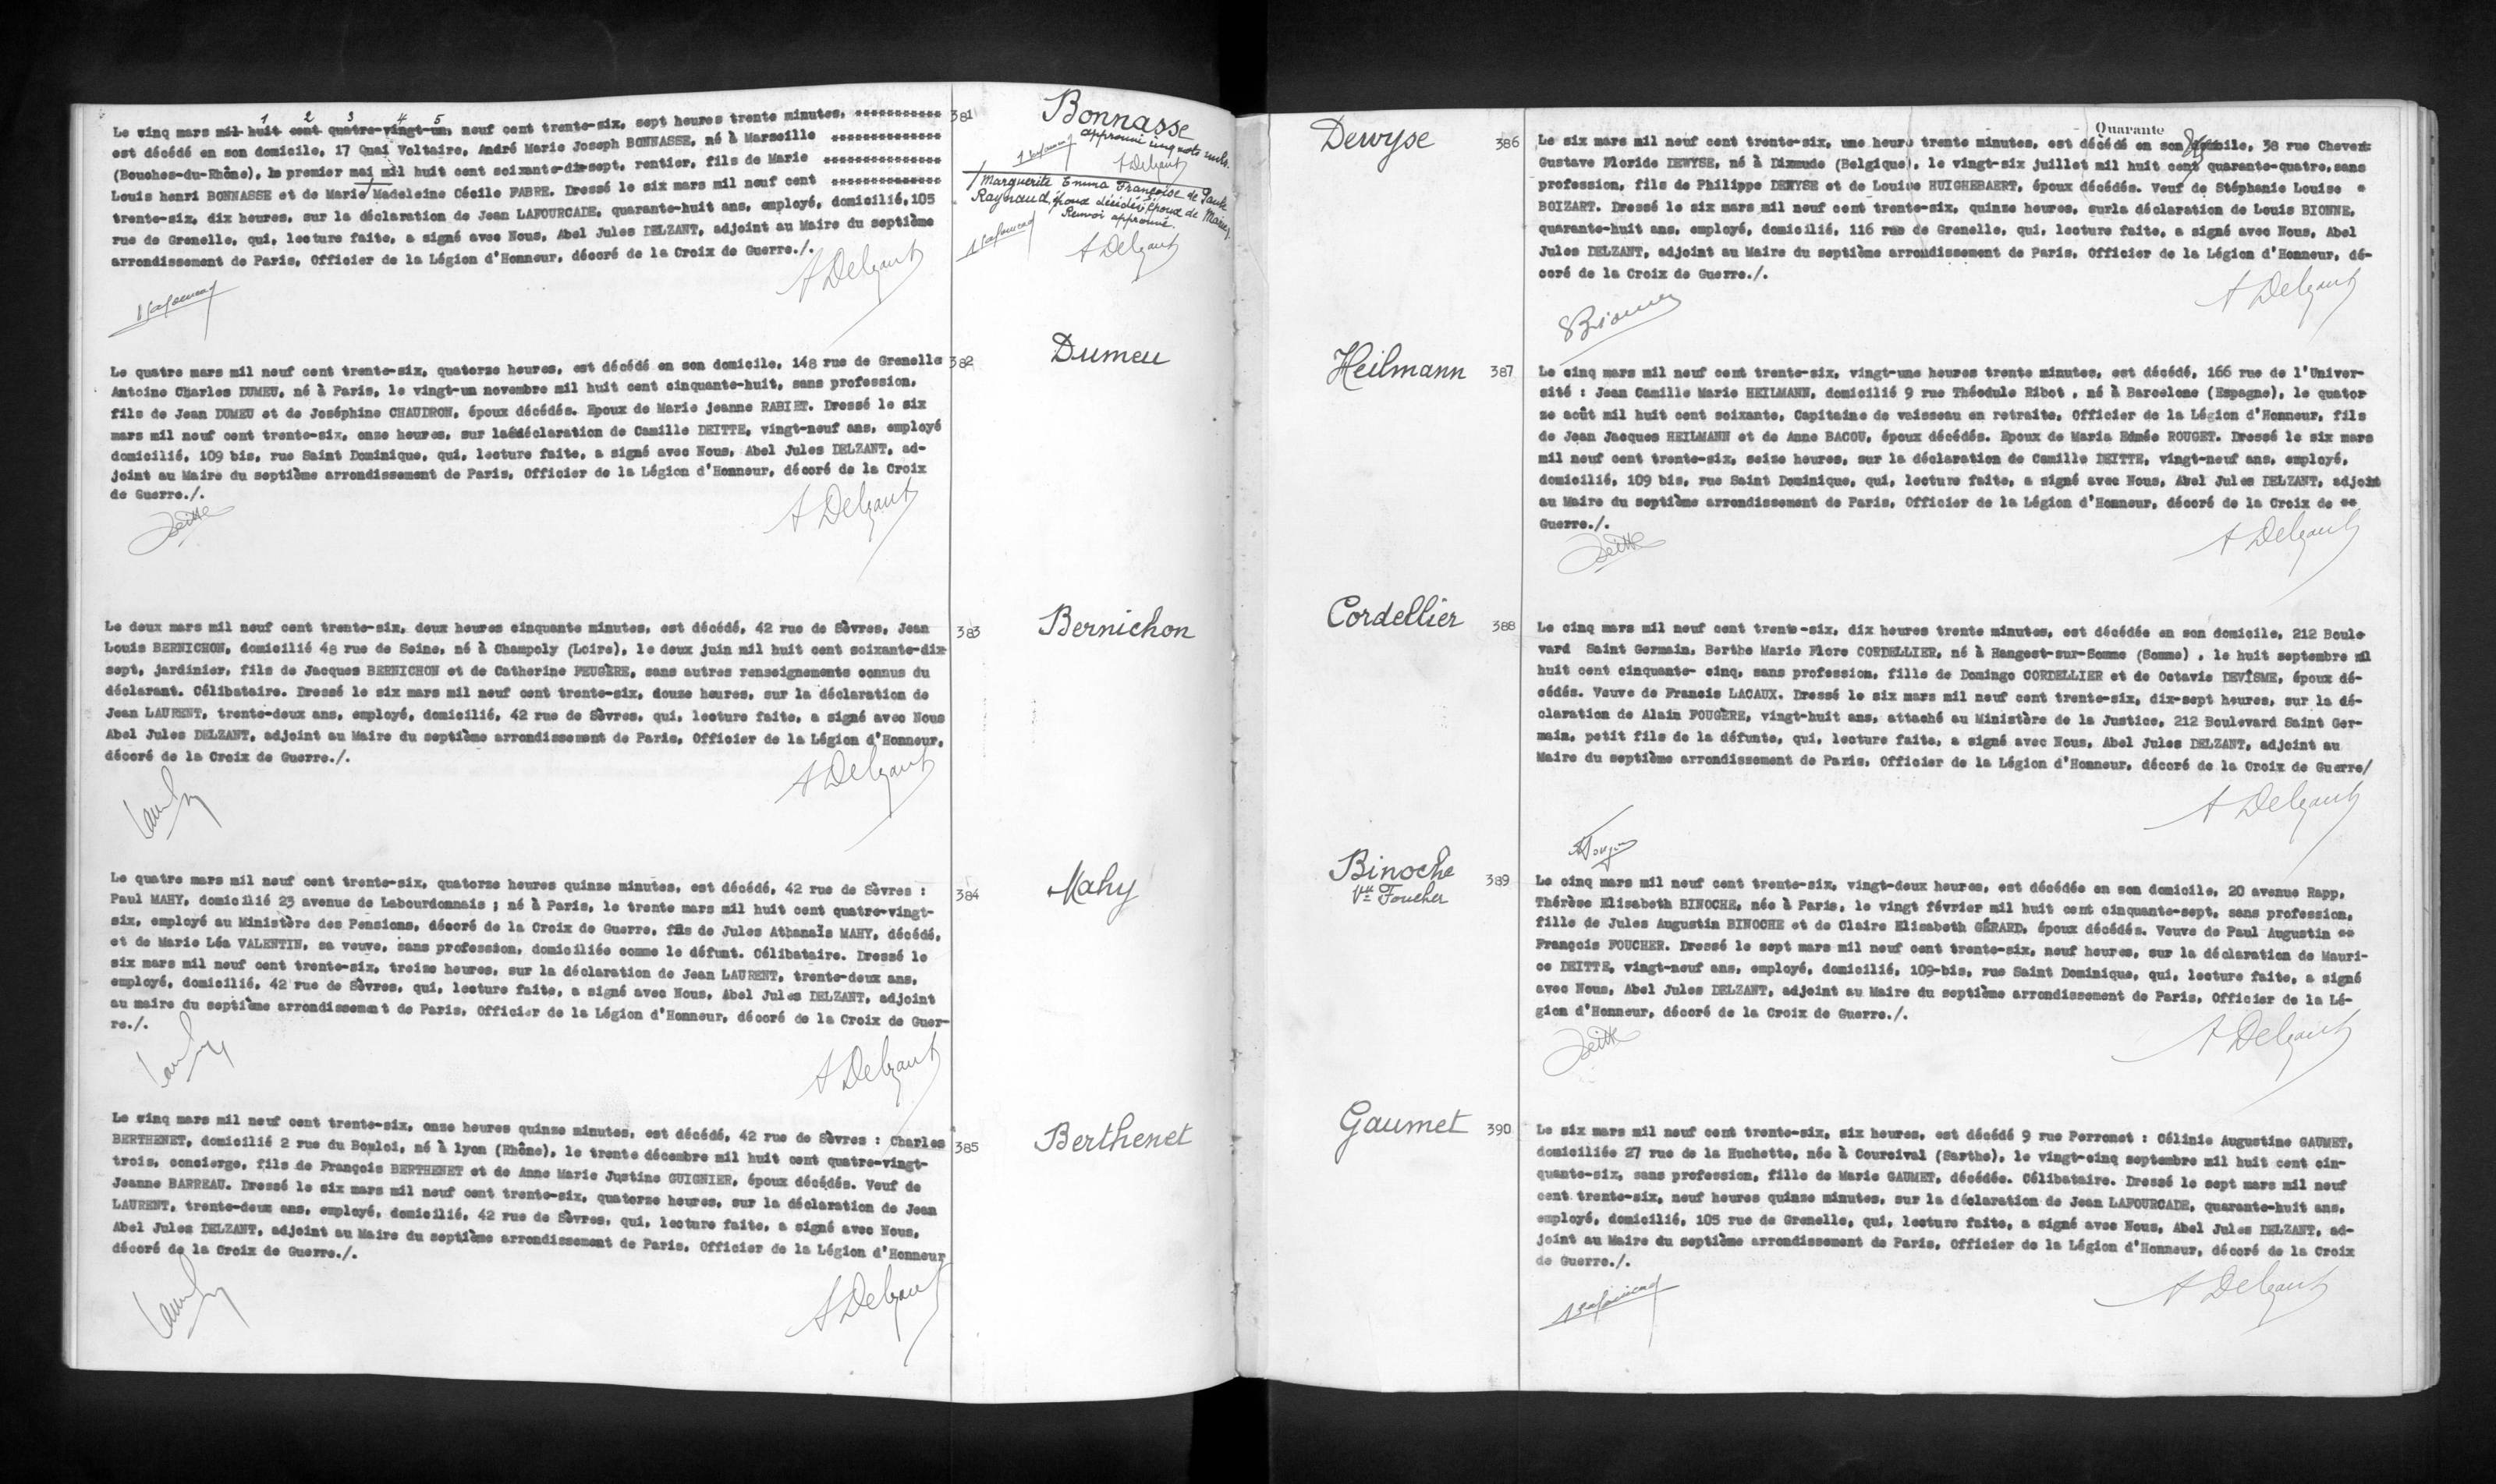 Le cinq mars mil huit cent quatre-vingt-un, neuf cent trente-six, sept heures trente minutes,
1 2 3 4 5
est décédé en son domicile, 17 Quai Voltaire, André Marie Joseph BONNASSE, né à Marseille
(Bouches-du-Rhône), le premier mai mil huit cent soixante-dix-sept, rentier, fils de Marie
Louis henri BONNASSE et de Marie Madeleine Cécile FABRE. Dressé le six mars mil neuf cent
trente-six, dix heures, sur la déclaration de Jean LAFOURCADE, quarante-huit ans, employé, domicilié, 105
rue de Grenelle, qui, lecture faite, a signé avec Nous, Abel Jules DELZANT, adjoint au Maire du septième
arrondissement de Paris, Officier de la Légion d'Honneur, décoré de la Croix de Guerre./.
A Delzant
381
Bonnasse
approuvé cinq mots nuls.
A Delzant
Marguerite Emma Françoise de Paule
Raynaud, époux décédés. Epoux de Marie
Renvoi approuvé.
A Delzant
Le quatre mars mil neuf cent trente-six, quatorze heures, est décédé en son domicile, 148 rue de Grenelle
Antoine Charles DUMEU, né à Paris, le vingt-un novembre mil huit cent cinquante-huit, sans profession,
fils de Jean DUMEU et de Joséphine CHAUDRON, époux décédés. Epoux de Marie jeanne RABIET. Dressé le six
mars mil neuf cent trente-six, onze heures, sur la déclaration de Camille DEITTE, vingt-neuf ans, employé
domicilié, 109 bis, rue Saint Dominique, qui, lecture faite, a signé avec Nous, Abel Jules DELZANT, ad-
joint au Maire du septième arrondissement de Paris, Officier de la Légion d'Honneur, décoré de la Croix
de Guerre./.
Deitte
A Delzant
382
Dumeu
Le deux mars mil neuf cent trente-six, deux heures cinquante minutes, est décédé, 42 rue de Sèvres, Jean
Louis BERNICHON, domicilié 48 rue de Seine, né à Champoly (Loire), le deux juin mil huit cent soixante-dix
sept, jardinier, fils de Jacques BERNICHON et de Catherine FEUGÈRE, sans autres renseignements connus du
déclarant. Célibataire. Dressé le six mars mil neuf cent trente-six, douze heures, sur la déclaration de
Jean LAURENT, trente-deux ans, employé, domicilié, 42 rue de Sèvres, qui, lecture faite, a signé avec Nous
Abel Jules DELZANT, adjoint au Maire du septième arrondissement de Paris, Officier de la Légion d'Honneur,
décoré de la Croix de Guerre./.
A Delzant
383
Bernichon
Le quatre mars mil neuf cent trente-six, quatorze heures quinze minutes, est décédé, 42 rue de Sèvres :
Paul MAHY, domicilié 23 avenue de Labourdonnais ; né à Paris, le trente mars mil huit cent quatre-vingt-
six, employé au Ministère des Pensions, décoré de la Croix de Guerre, fils de Jules Athanaïs MAHY, décédé,
et de Marie Léa VALENTIN, sa veuve, sans profession, domiciliée comme le défunt. Célibataire. Dressé le
six mars mil neuf cent trente-six, treize heures, sur la déclaration de Jean LAURENT, trente-deux ans,
employé, domicilié, 42 rue de Sèvres, qui, lecture faite, a signé avec Nous, Abel Jules DELZANT, adjoint
au maire du septième arrondissement de Paris, Officier de la Légion d'Honneur, décoré de la Croix de Guer-
re./.
A Delzant
384
Mahy
Le cinq mars mil neuf cent trente-six, onze heures quinze minutes, est décédé, 42 rue de Sèvres : Charles
BERTHENET, domicilié 2 rue du Bouloi, né à lyon (Rhône), le trente décembre mil huit cent quatre-vingt-
trois, concierge, fils de François BERTHENET et de Anne Marie Justine GUIGNIER, époux décédés. Veuf de
Jeanne BARREAU. Dressé le six mars mil neuf cent trente-six, quatorze heures, sur la déclaration de Jean
LAURENT, trente-deux ans, employé, domicilié, 42 rue de Sèvres, qui, lecture faite, a signé avec Nous,
Abel Jules DELZANT, adjoint au Maire du septième arrondissement de Paris, Officier de la Légion d'Honneur
décoré de la Croix de Guerre./.
A Delzant
385
Berthenet
Quarante
Dewyse
386
Le six mars mil neuf cent trente-six, une heure trente minutes, est décédé en son domicile, 38 rue Chevert
Gustave Floride DEWYSE, né à Dixmude (Belgique), le vingt-six juillet mil huit cent quarante-quatre, sans
profession, fils de Philippe DEWYSE et de Louise HUIGHEBAERT, époux décédés. Veuf de Stéphanie Louise
BOIZART. Dressé le six mars mil neuf cent trente-six, quinze heures, surla déclaration de Louis BIONNE,
quarante-huit ans, employé, domicilié, 116 rue de Grenelle, qui, lecture faite, a signé avec Nous, Abel
Jules DELZANT, adjoint au Maire du septième arrondissement de Paris, Officier de la Légion d'Honneur, dé-
coré de la Croix de Guerre./.
A Delzant
Heilmann
387
Le cinq mars mil neuf cent trente-six, vingt-une heures trente minutes, est décédé, 166 rue de l'Univer-
sité : Jean Camille Marie HEILMANN, domicilié 9 rue Théodule Ribot , né à Barcelone (Espagne), le quator
ze août mil huit cent soixante, Capitaine de vaisseau en retraite, Officier de la Légion d'Honneur, fils
de Jean Jacques HEILMANN et de Anne BACOU, époux décédés. Epoux de Maria Edmée ROUGET. Dressé le six mars
mil neuf cent trente-six, seize heures, sur la déclaration de Camille DEITTE, vingt-neuf ans, employé,
domicilié, 109 bis, rue Saint Dominique, qui, lecture faite, a signé avec Nous, Abel Jules DELZANT, adjoint
au Maire du septième arrondissement de Paris, Officier de la Légion d'Honneur, décoré de la Croix de
Guerre./.
Deitte
A Delzant
Cordellier
388
Le cinq mars mil neuf cent trente-six, dix heures trente minutes, est décédée en son domicile, 212 Boule
vard Saint Germain, Berthe Marie Flore CORDELLIER, né à Hangest-sur-Somme (Somme) , le huit septembre mil
huit cent cinquante- cinq, sans profession, fille de Domingo CORDELLIER et de Octavie DEVÎSME, époux dé-
cédés. Veuve de Francis LACAUX. Dressé le six mars mil neuf cent trente-six, dix-sept heures, sur la dé-
claration de Alain FOUGÈRE, vingt-huit ans, attaché au Ministère de la Justice, 212 Boulevard Saint Ger-
main, petit fils de la défunte, qui, lecture faite, a signé avec Nous, Abel Jules DELZANT, adjoint au
Maire du septième arrondissement de Paris, Officier de la Légion d'Honneur, décoré de la Croix de Guerre/
A Delzant
Binoche
Vve Foucher
389
Le cinq mars mil neuf cent trente-six, vingt-deux heures, est décédée en son domicile, 20 avenue Rapp,
Thérèse Elisabeth BINOCHE, née à Paris, le vingt février mil huit cent cinquante-sept, sans profession,
fille de Jules Augustin BINOCHE et de Claire Elisabeth GÉRARD, époux décédés. Veuve de Paul Augustin
François FOUCHER. Dressé le sept mars mil neuf cent trente-six, neuf heures, sur la déclaration de Mauri-
ce DEITTE, vingt-neuf ans, employé, domicilié, 109-bis, rue Saint Dominique, qui, lecture faite, a signé
avec Nous, Abel Jules DELZANT, adjoint au Maire du septième arrondissement de Paris, Officier de la Lé-
gion d'Honneur, décoré de la Croix de Guerre./.
Deitte
A Delzant
Gaumet
390
Le six mars mil neuf cent trente-six, six heures, est décédé 9 rue Perronet : Célinie Augustine GAUMET,
domiciliée 27 rue de la Huchette, née à Courcival (Sarthe), le vingt-cinq septembre mil huit cent cin-
quante-six, sans profession, fille de Marie GAUMET, décédés. Célibataire. Dressé le sept mars mil neuf
cent trente-six, neuf heures quinze minutes, sur la déclaration de Jean LAFOURCADE, quarante-huit ans,
employé, domicilié, 105 rue de Grenelle, qui, lecture faite, a signé avec Nous, Abel Jules DELZANT, ad-
joint au Maire du septième arrondissement de Paris, Officier de la Légion d'Honneur, décoré de la Croix
de Guerre./.
A Delzant